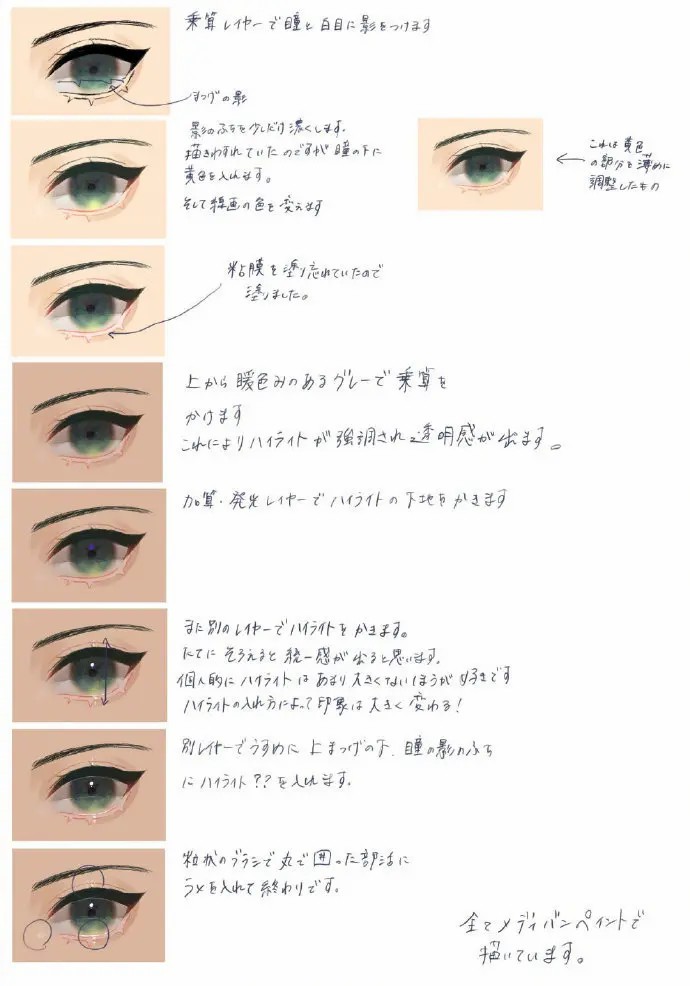 乗算レイヤーで瞳と白目に影をつけます
まつげの影
影のふちを少しだけ濃くします。
描きわすれていたのですが瞳の下に
黄色を入れます。
そして線画の色を変えます
これは黄色
の部分を薄めに
調整したもの
粘膜を塗り忘れていたので
塗りました。
上から暖色みのあるグレーで乗算を
かけます
これによりハイライトが強調され透明感が出ます。
加算・発光レイヤーでハイライトの下地をかきます
また別のレイヤーでハイライトをかきます。
たてにそろえると統一感が出ると思います。
個人的にハイライトはあまり大きくないほうが好きです
ハイライトの入れ方によって印象は大きく変わる!
別レイヤーでうすめに上まつげの下、瞳の影のふち
にハイライト??を入れます。
粒状のブラシで丸で囲った部活に
ラメを入れて終わりです。
全てメディバンペイントで
描いています。